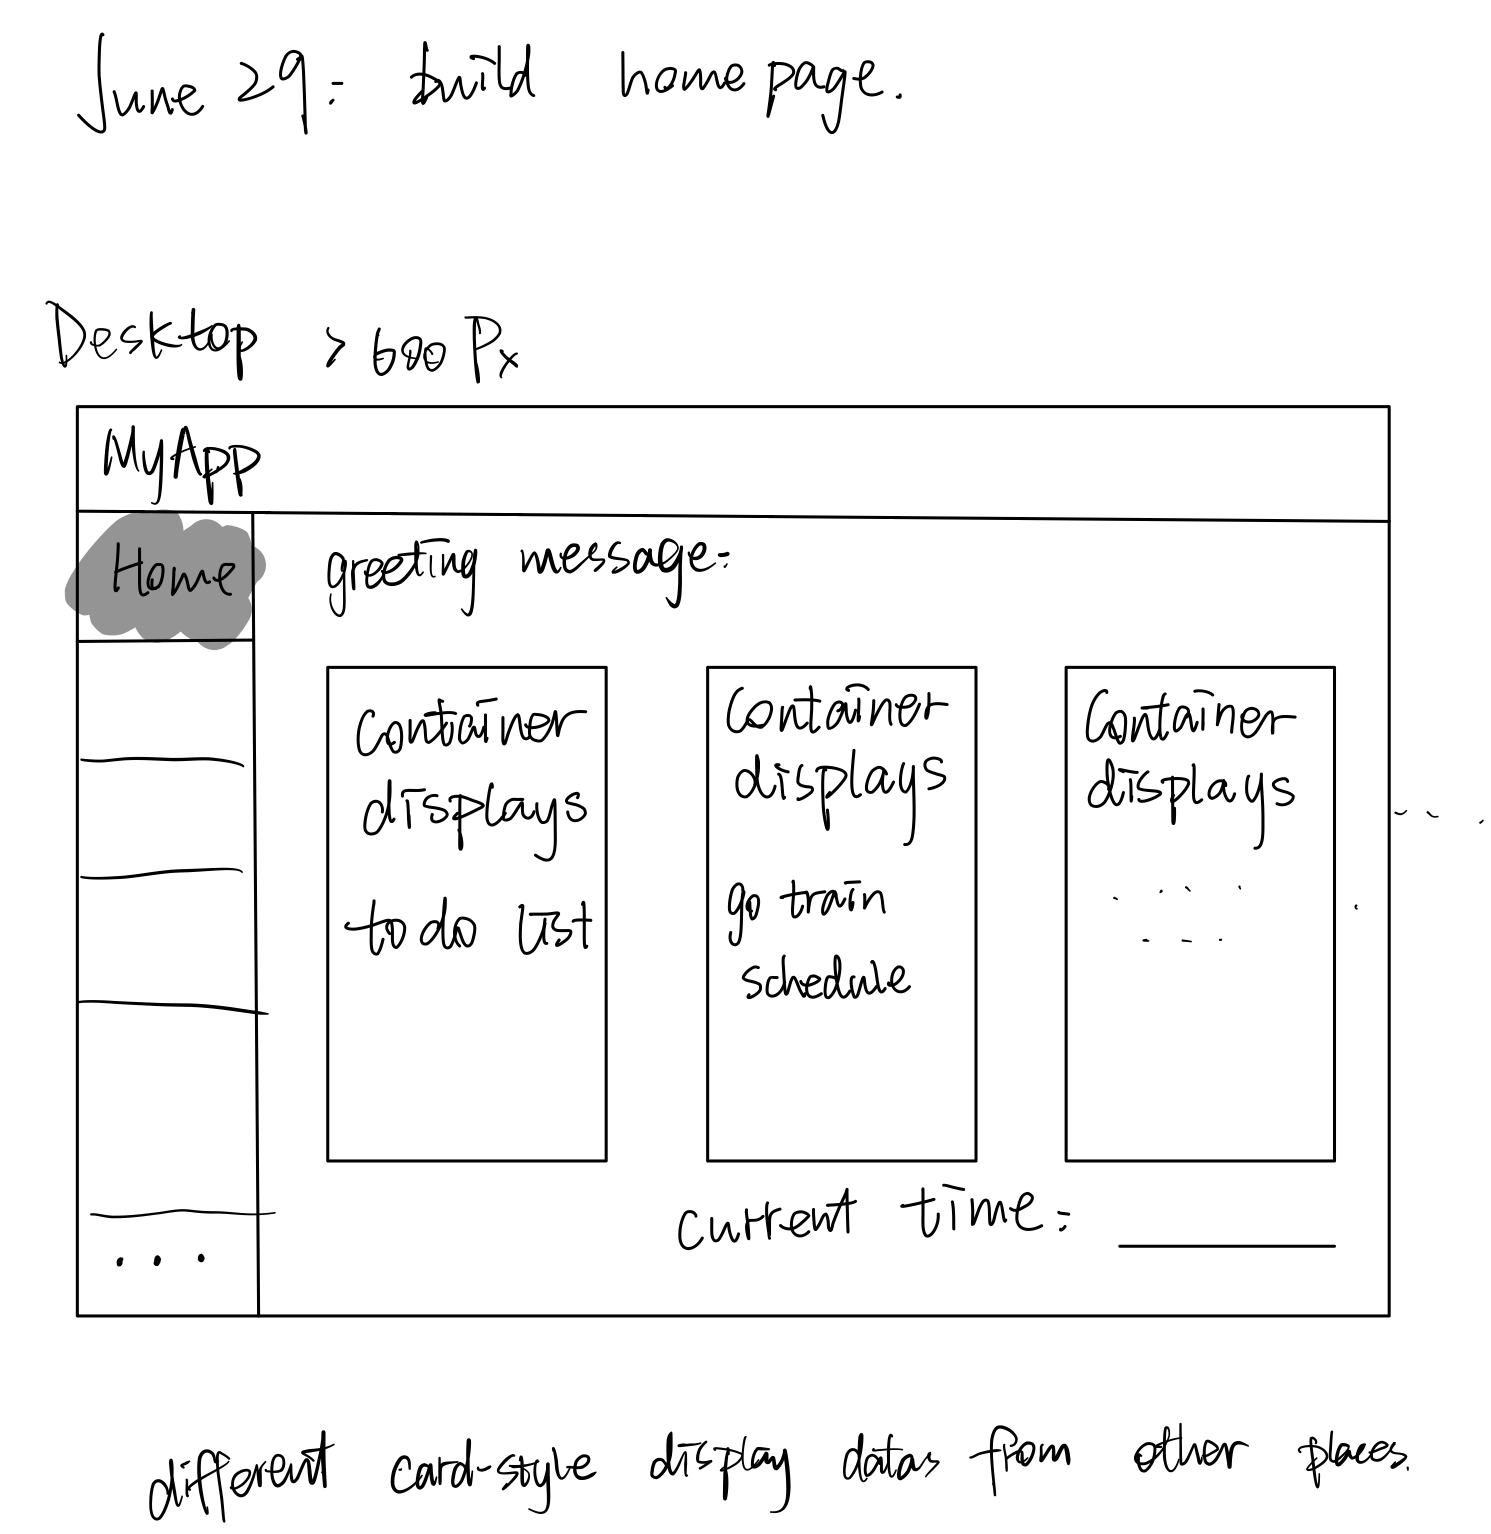 June 29: build home page.
Desktop > 600 Px
MyApp
Home
greeting message:
Container
displays
to do list
Container
displays
go train
schedule
Container
displays
. . . .
. . .
. . .
current time:
. . .
different card-style display datas from other places.